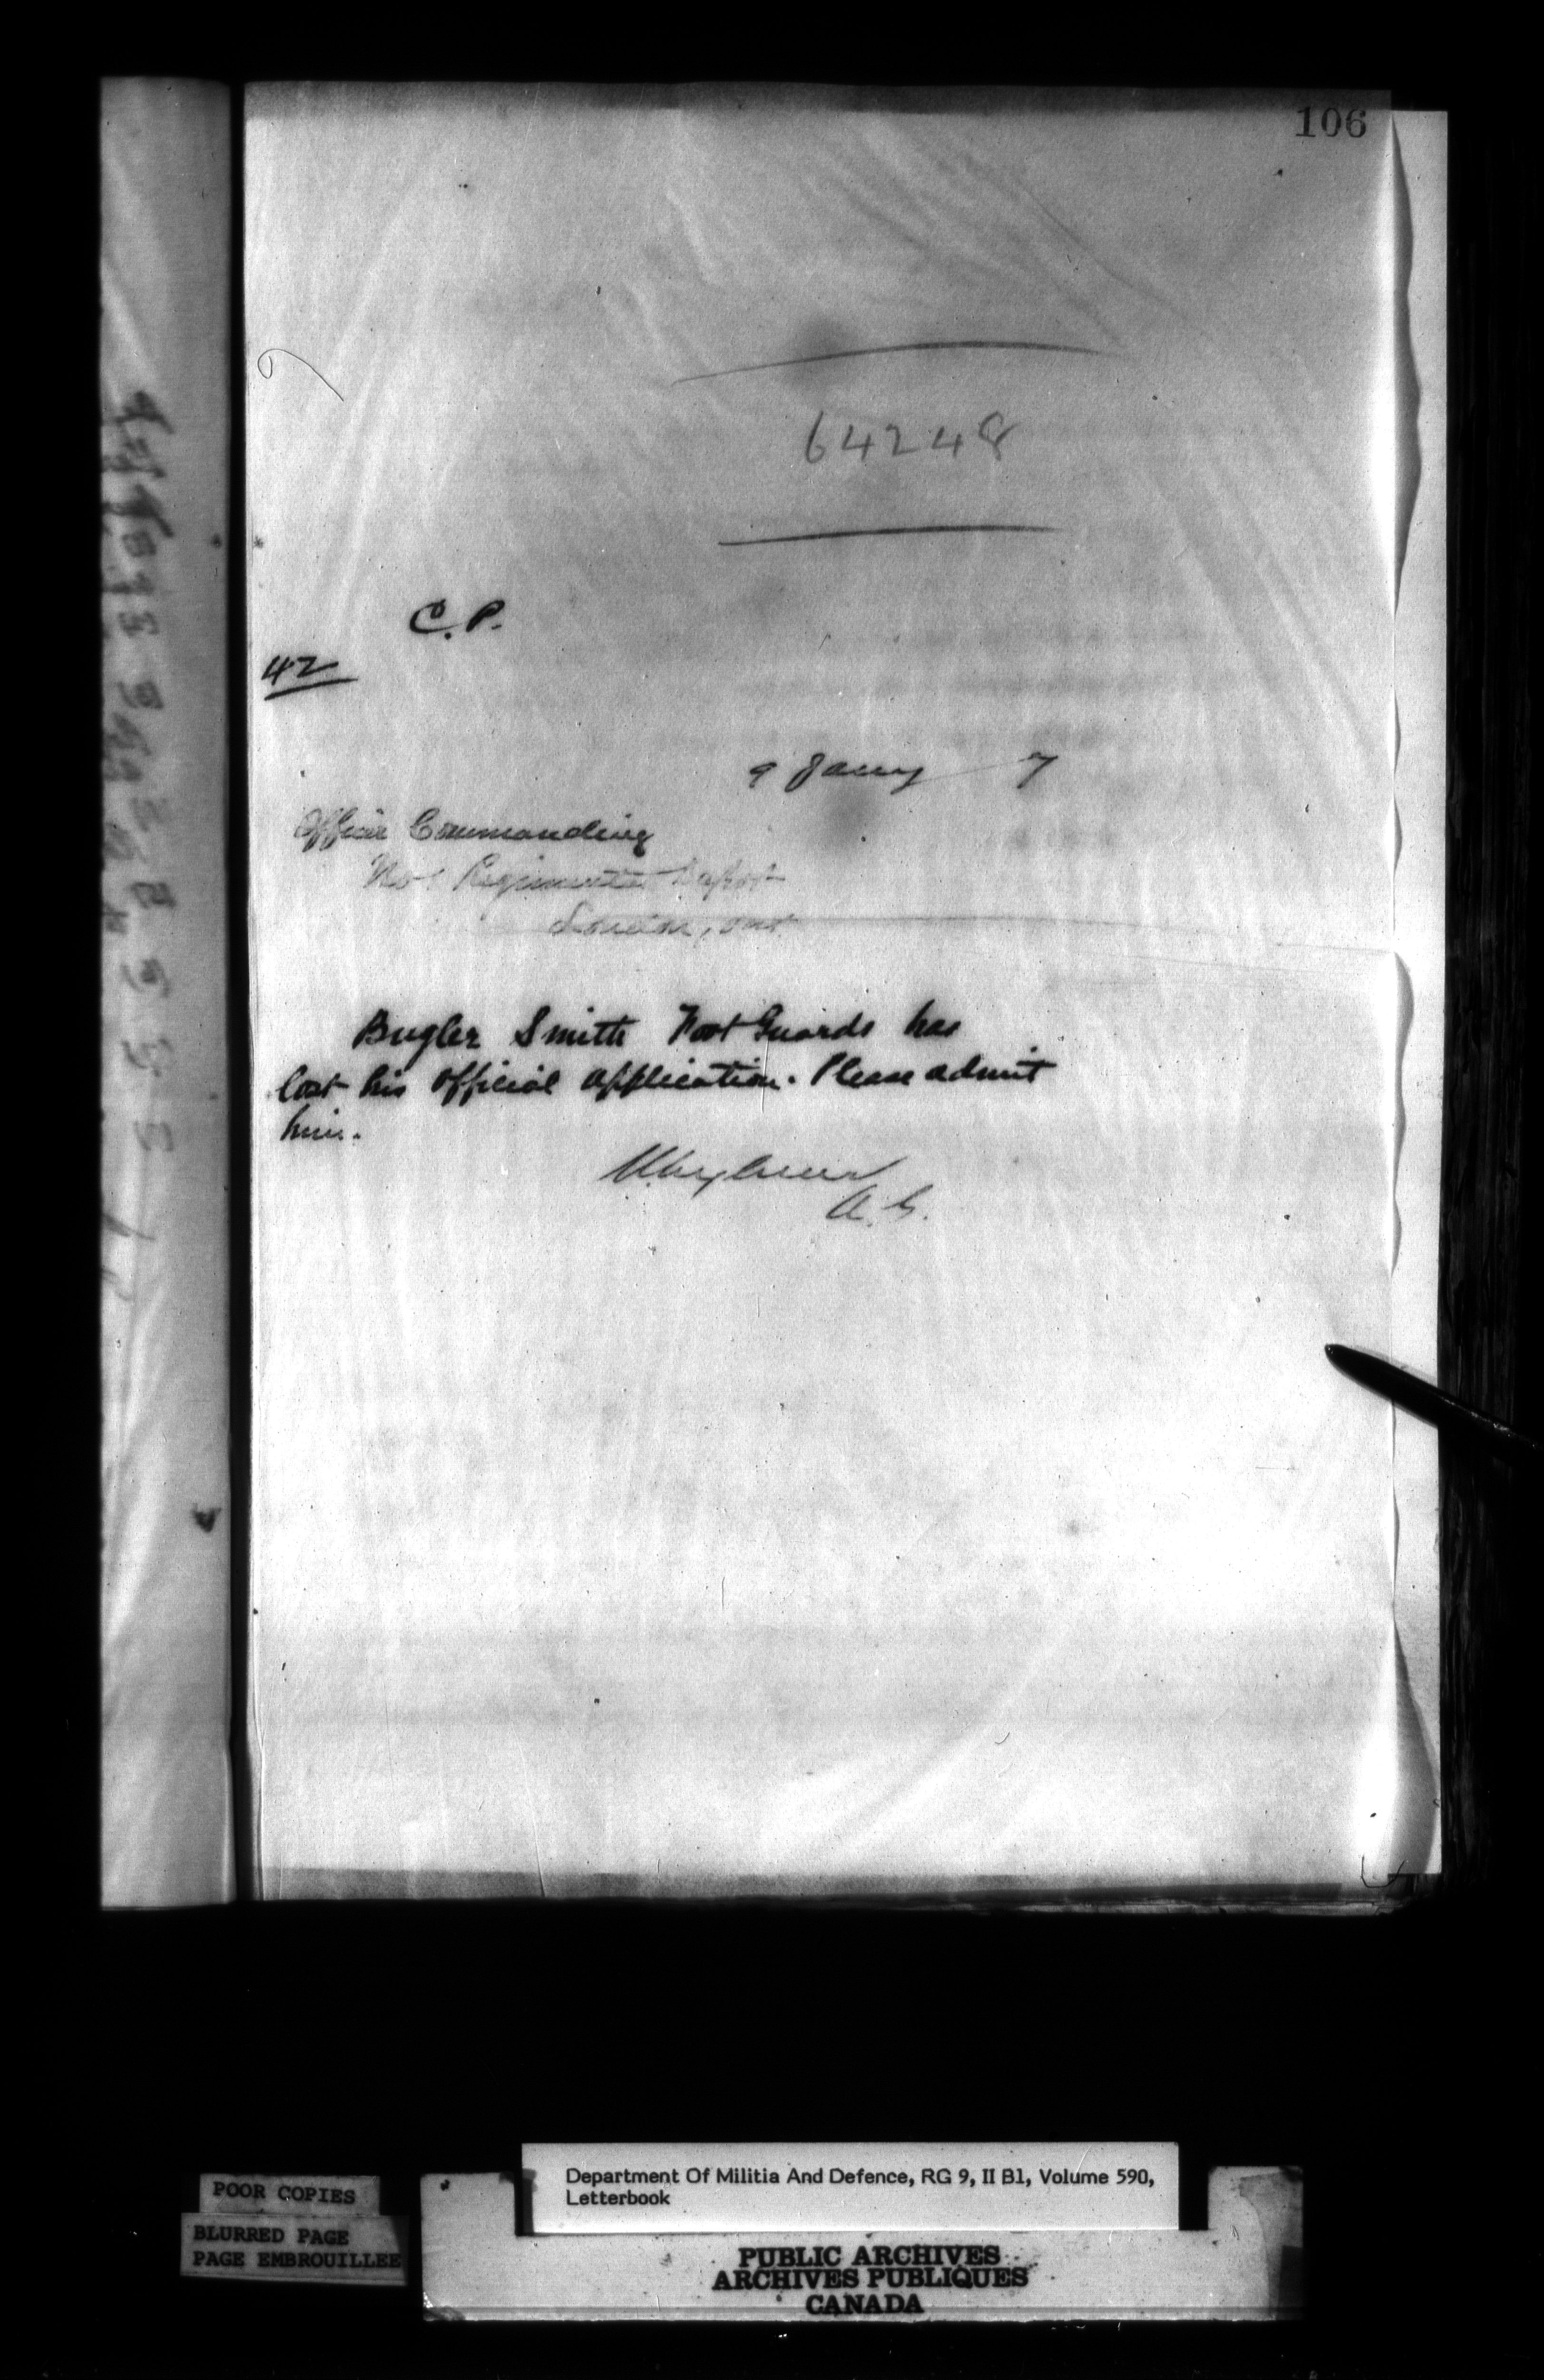 106
64248
C. P.
42
9 Jany 7
Officer Commanding
No 1 Regimental Depot
London, Ont
Bugler Smith Foot Guards has
lost his official application. Please admit
him.
A. G.
POOR COPIES
BLURRED PAGE
PAGE EMBROUILLEE
Department Of Militia And Defence, RG 9, II B1, Volume 590,
Letterbook
PUBLIC ARCHIVES
ARCHIVES PUBLIQUES
CANADA